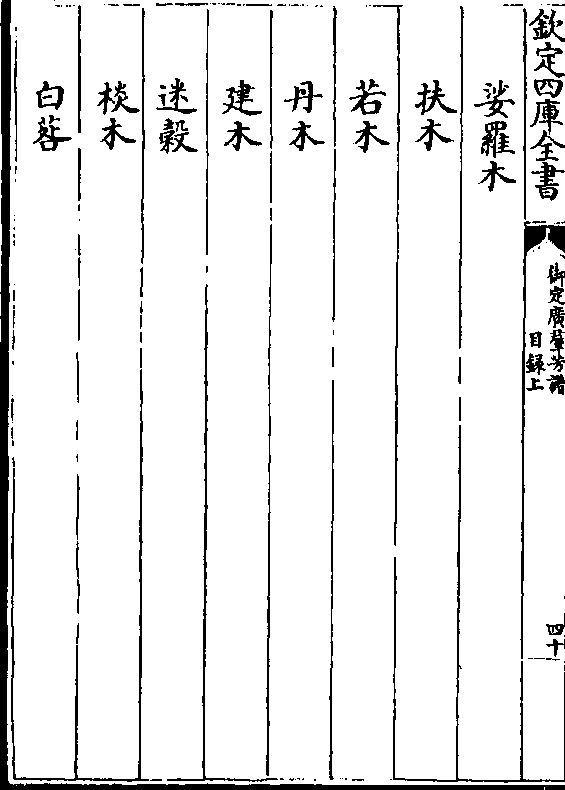 欽定四庫全書
御定廣羣芳譜
目録上
四十
娑羅木
扶木
若木
丹木
建木
迷穀
棪木
白䓘